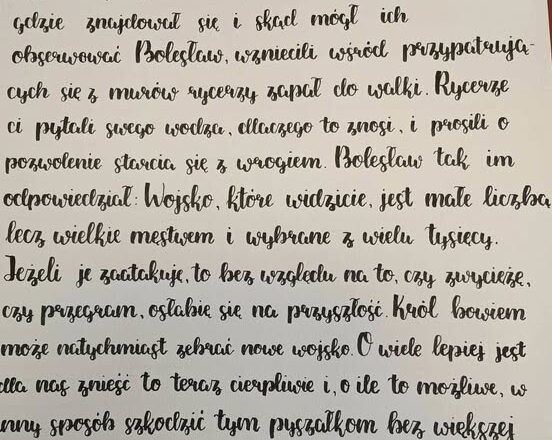 gdzie znajdował się i skąd mógł ich
obserwować Bolesław, wzniecili wśród przypatrują-
cych się z murów rycerzy zapał do walki. Rycerze
ci pytali swego wodza, dlaczego to znosi, i prosili o
pozwolenie starcia się z wrogiem. Bolesław tak im
odpowiedział: Wojsko, które widzicie, jest małe liczbą
lecz wielkie męstwem i wybrane z wielu tysięcy.
Jeżeli je zaatakuję, to bez względu na to, czy zwyciężę,
czy przegram, osłabię się na przyszłość. Król bowiem
może natychmiast zebrać nowe wojsko. O wiele lepiej jest
dla nas znieść to teraz cierpliwie i, o ile to możliwe, w
nny sposób szkodzić tym pyszałkom bez większej